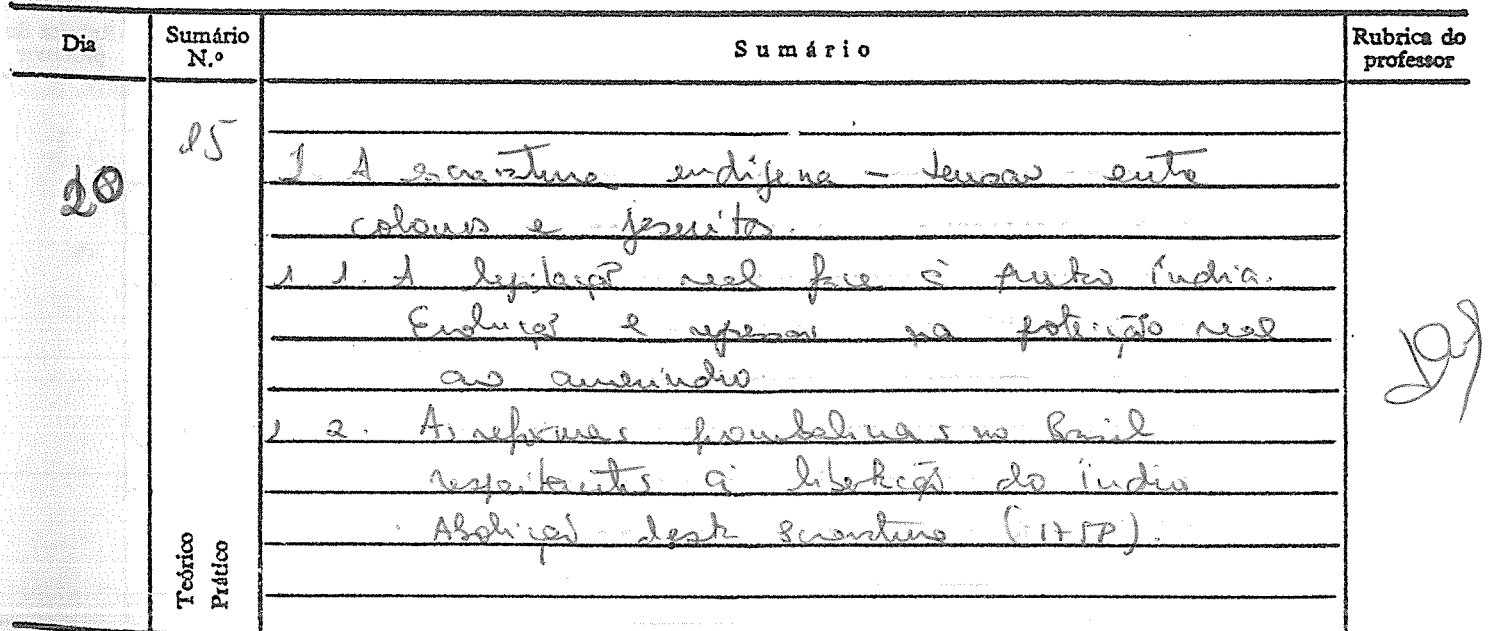 Dia
Sumário N.º
Sumário
Rubrica do professor
20
15
1. A escravatura indígena – tensão entre
colonos e jesuítas.
1.1. A legislação real face à
índia.
Evolução e na protecção real
ao ameríndio
1.2. As reformas pombalinas no Brasil
respeitantes à libertação do índio
Abolição desta escravatura (1758).
Teórico
Prático